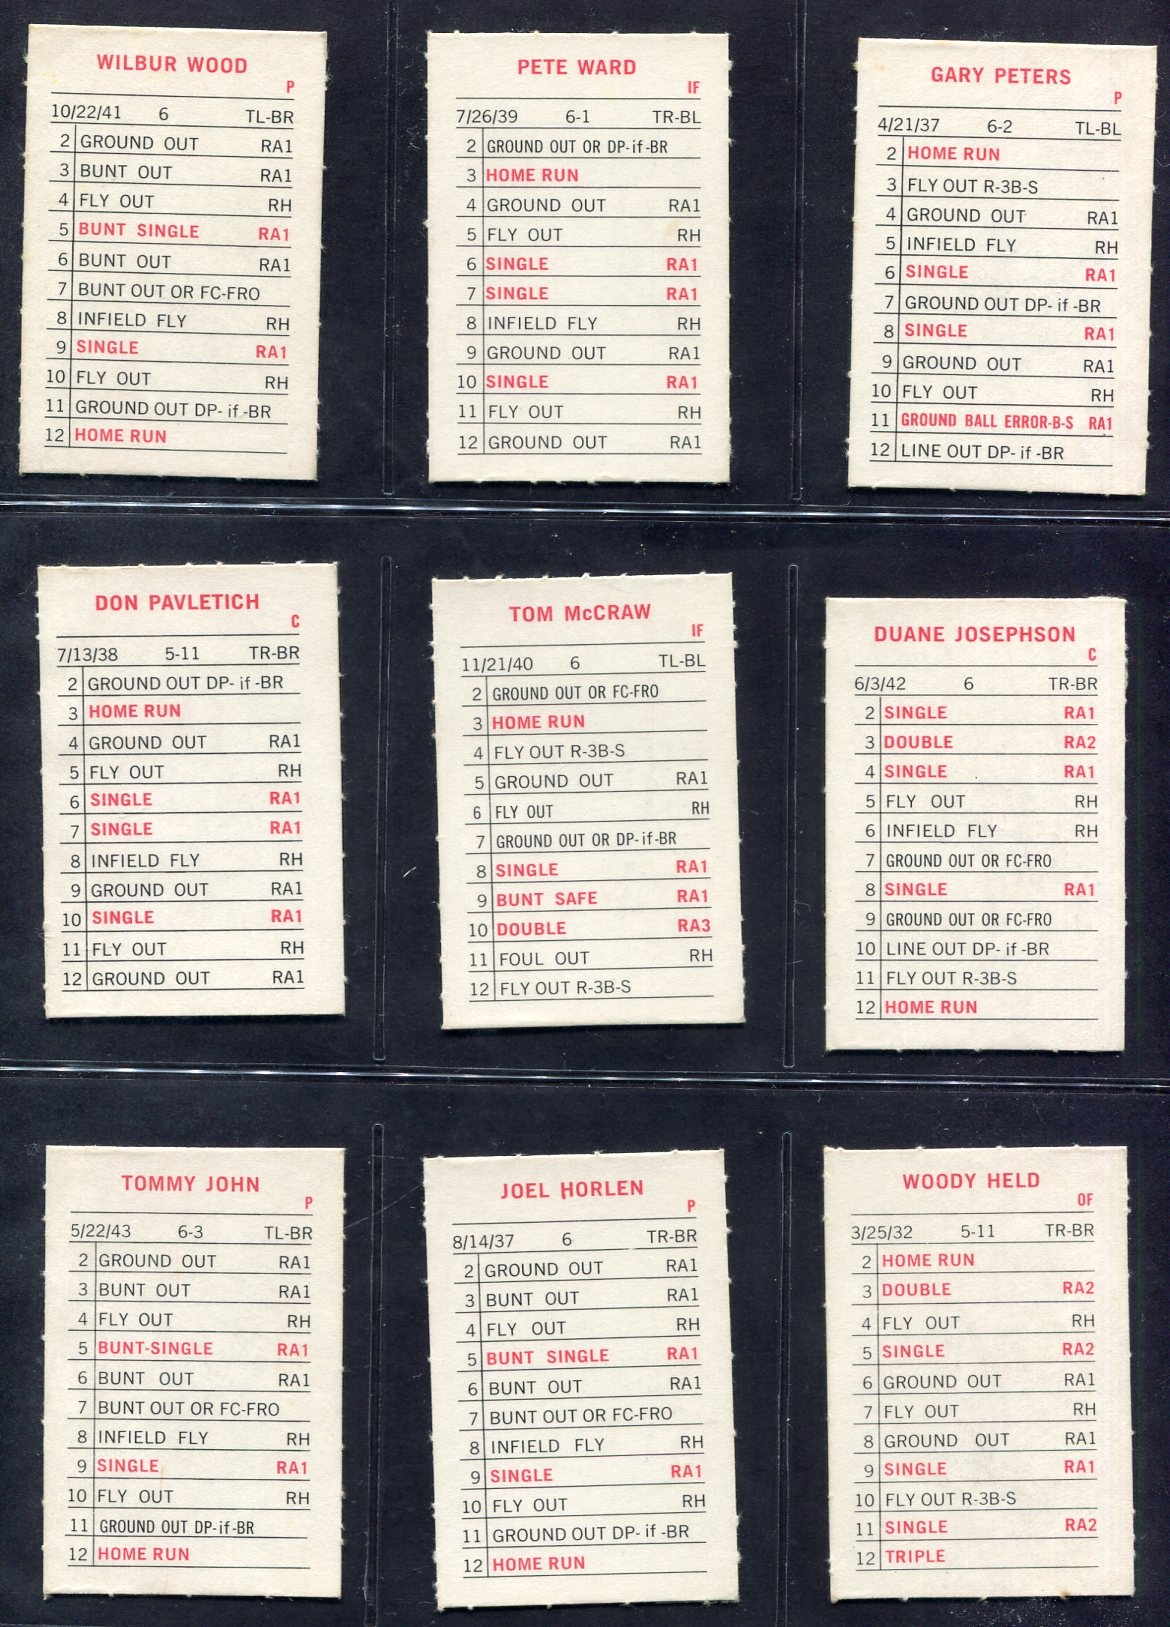 WILBUR WOOD
P
10/22/41 6 TL-BR
2 GROUND OUT RA1
3 BUNT OUT RA1
4 FLY OUT RH
5 BUNT SINGLE RA1
6 BUNT OUT RA1
7 BUNT OUT OR FC-FRO
8 INFIELD FLY RH
9 SINGLE RA1
10 FLY OUT RH
11 GROUND OUT DP- if -BR
12 HOME RUN
PETE WARD
IF
7/26/39 6-1 TR-BL
2 GROUND OUT OR DP-if-BR
3 HOME RUN
4 GROUND OUT RA1
5 FLY OUT RH
6 SINGLE RA1
7 SINGLE RA1
8 INFIELD FLY RH
9 GROUND OUT RA1
10 SINGLE RA1
11 FLY OUT RH
12 GROUND OUT RA1
GARY PETERS
P
4/21/37 6-2 TL-BL
2 HOME RUN
3 FLY OUT R-3B-S
4 GROUND OUT RA1
5 INFIELD FLY RH
6 SINGLE RA1
7 GROUND OUT DP- if -BR
8 SINGLE RA1
9 GROUND OUT RA1
10 FLY OUT RH
11 GROUND BALL ERROR-B-S RA1
12 LINE OUT DP- if -BR
DON PAVLETICH
C
7/13/38 5-11 TR-BR
2 GROUND OUT DP- if -BR
3 HOME RUN
4 GROUND OUT RA1
5 FLY OUT RH
6 SINGLE RA1
7 SINGLE RA1
8 INFIELD FLY RH
9 GROUND OUT RA1
10 SINGLE RA1
11 FLY OUT RH
12 GROUND OUT RA1
TOM McCRAW
IF
11/21/40 6 TL-BL
2 GROUND OUT OR FC-FRO
3 HOME RUN
4 FLY OUT R-3B-S
5 GROUND OUT RA1
6 FLY OUT RH
7 GROUND OUT OR DP-if-BR
8 SINGLE RA1
9 BUNT SAFE RA1
10 DOUBLE RA3
11 FOUL OUT RH
12 FLY OUT R-3B-S
DUANE JOSEPHSON
C
6/3/42 6 TR-BR
2 SINGLE RA1
3 DOUBLE RA2
4 SINGLE RA1
5 FLY OUT RH
6 INFIELD FLY RH
7 GROUND OUT OR FC-FRO
8 SINGLE RA1
9 GROUND OUT OR FC-FRO
10 LINE OUT DP- if -BR
11 FLY OUT R-3B-S
12 HOME RUN
TOMMY JOHN
P
5/22/43 6-3 TL-BR
2 GROUND OUT RA1
3 BUNT OUT RA1
4 FLY OUT RH
5 BUNT-SINGLE RA1
6 BUNT OUT RA1
7 BUNT OUT OR FC-FRO
8 INFIELD FLY RH
9 SINGLE RA1
10 FLY OUT RH
11 GROUND OUT DP-if-BR
12 HOME RUN
JOEL HORLEN
P
8/14/37 6 TR-BR
2 GROUND OUT RA1
3 BUNT OUT RA1
4 FLY OUT RH
5 BUNT SINGLE RA1
6 BUNT OUT RA1
7 BUNT OUT OR FC-FRO
8 INFIELD FLY RH
9 SINGLE RA1
10 FLY OUT RH
11 GROUND OUT DP- if -BR
12 HOME RUN
WOODY HELD
OF
3/25/32 5-11 TR-BR
2 HOME RUN
3 DOUBLE RA2
4 FLY OUT RH
5 SINGLE RA2
6 GROUND OUT RA1
7 FLY OUT RH
8 GROUND OUT RA1
9 SINGLE RA1
10 FLY OUT R-3B-S
11 SINGLE RA2
12 TRIPLE